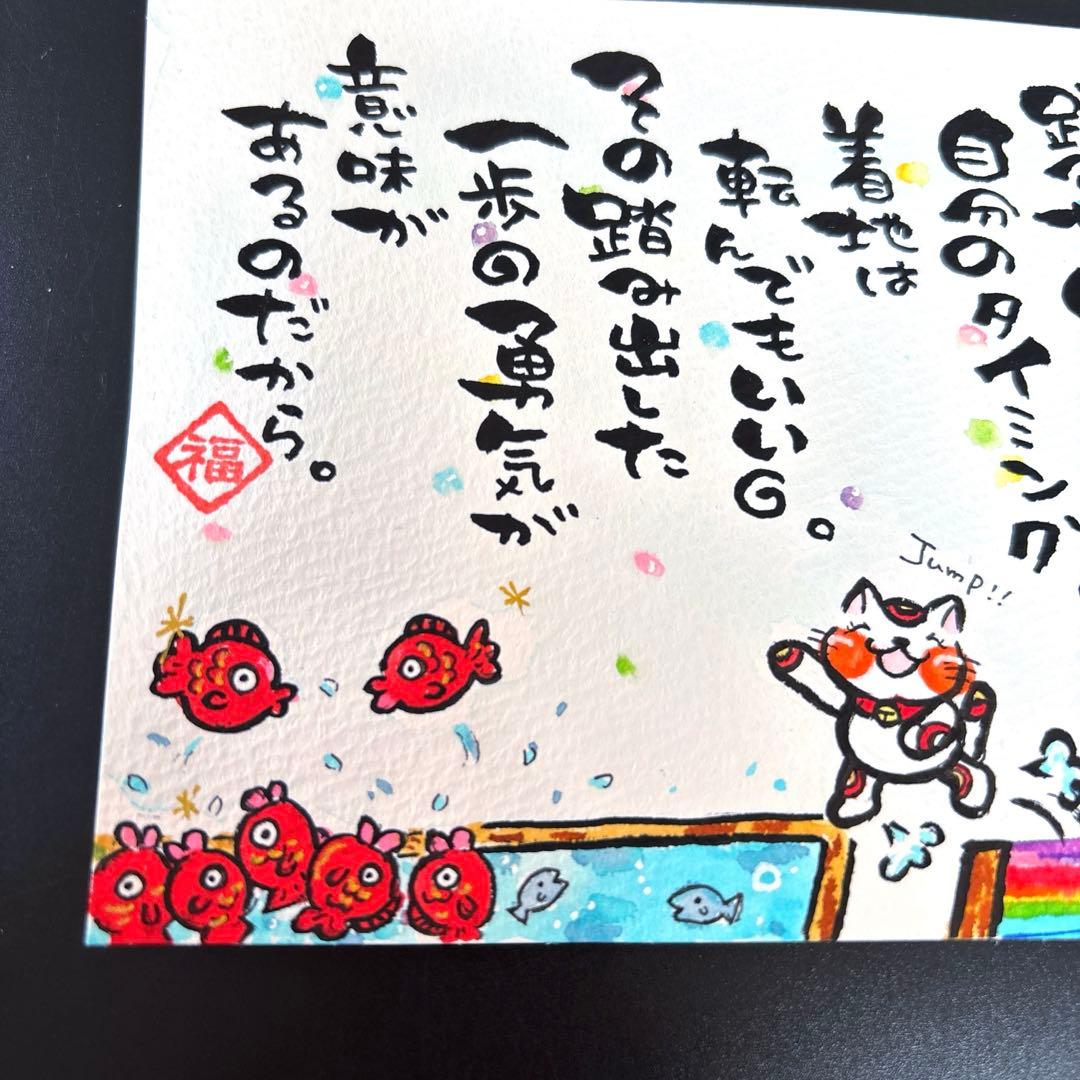 自分のタイミング
着地は
転んでもいいの。
その踏み出した
一歩の勇気が
意味が
あるのだから。
福
Jump!!